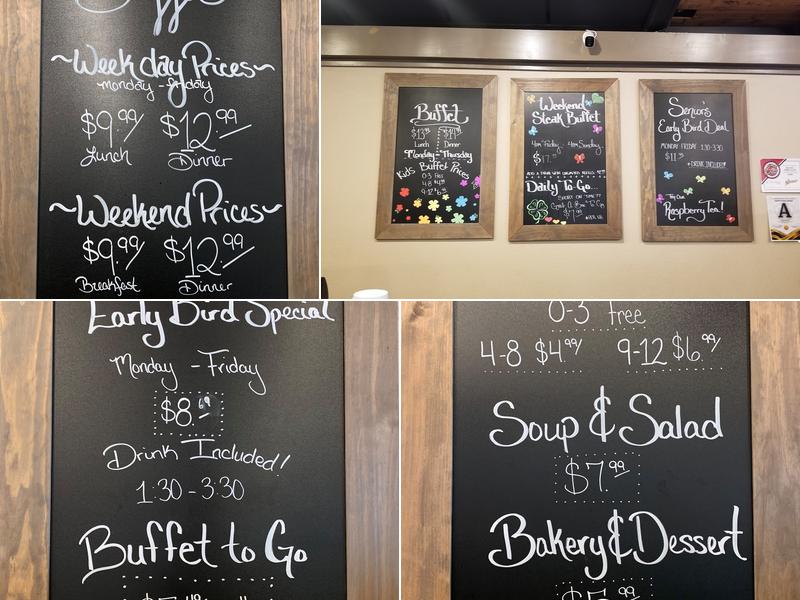 ~Weekday Prices~
monday - friday
$9.99 $12.99
Lunch Dinner
~Weekend Prices~
$9.99 $12.99
Breakfast Dinner
Buffet
Lunch Dinner
Monday - Thursday
Kids Buffet Prices
0-3 Free
4-8 $4.99
9-12
Weekend
Steak Buffet
4pm Friday - 4pm Sunday
$17.
Daily To Go...
$7.99
Senior's
Early Bird Deal
MONDAY FRIDAY 1:30-3:30
$11.
DRINK INCLUDED
Try Our
Raspberry Tea!
A
Early Bird Special
Monday - Friday
$8.69
Drink Included!
1:30 - 3:30
Buffet to Go
0-3 free
4-8 $4.99 9-12 $6.99
Soup & Salad
$7.99
Bakery & Dessert